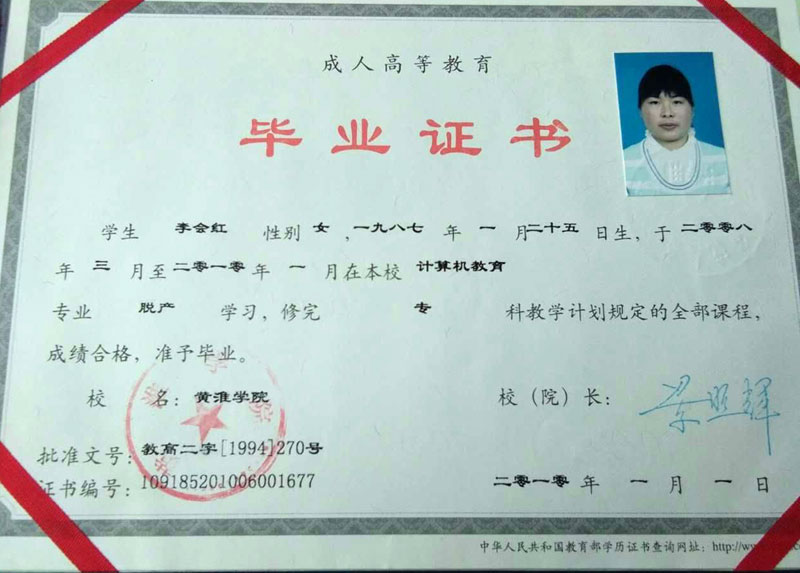 成人高等教育
毕业证书
学生 李会红 性别 女，一九八七 年 一 月 二十五 日生，于 二零零八
年 三 月至 二零一零 年 一 月在本校 计算机教育
专业 脱产 学习，修完 专 科教学计划规定的全部课程，
成绩合格，准予毕业。
校 名：黄淮学院 校（院）长：
批准文号：教高二字[1994]270号
证书编号：109185201006001677 二零一零 年 一 月 一 日
中华人民共和国教育部学历证书查询网址：http://www.